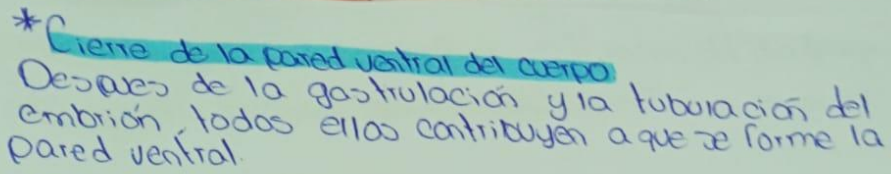 *Cierre de la pared ventral del cuerpo
Después de la gastrulación y la tubulación del
embrión, todos ellos contribuyen a que se forme la
pared ventral.